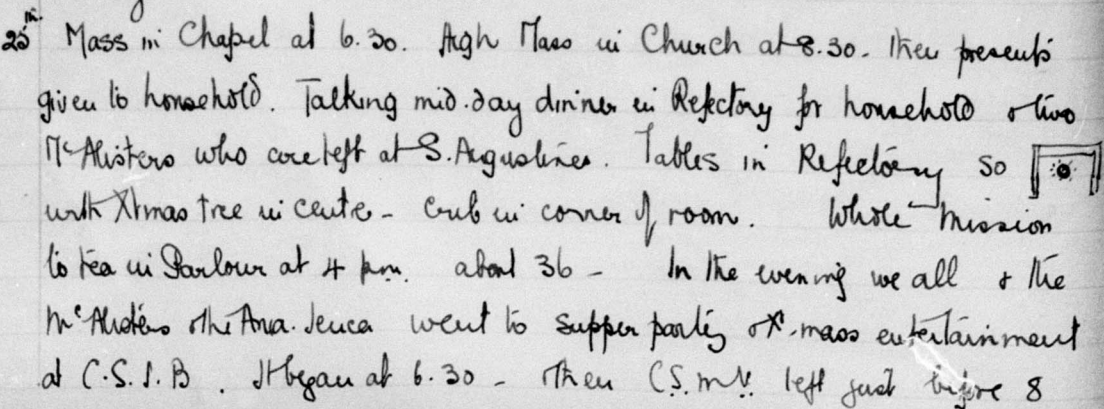 25th Mass in Chapel at 6.30. High Mass in Church at 8.30. then presents
given to household. Talking mid-day dinner in Refectory for household & two
McAlisters who are left at S. Augustines. Tables in Refectory so
with Xtmas tree in centre - Crib in corner of room. Whole Mission
to tea in Parlour at 4 p.m. about 36 - In the evening we all & the
McAlisters & the went to supper party & X-mass entertainment
at C.S.J.B. It began at 6.30 - then C.S.M.V. left just before 8